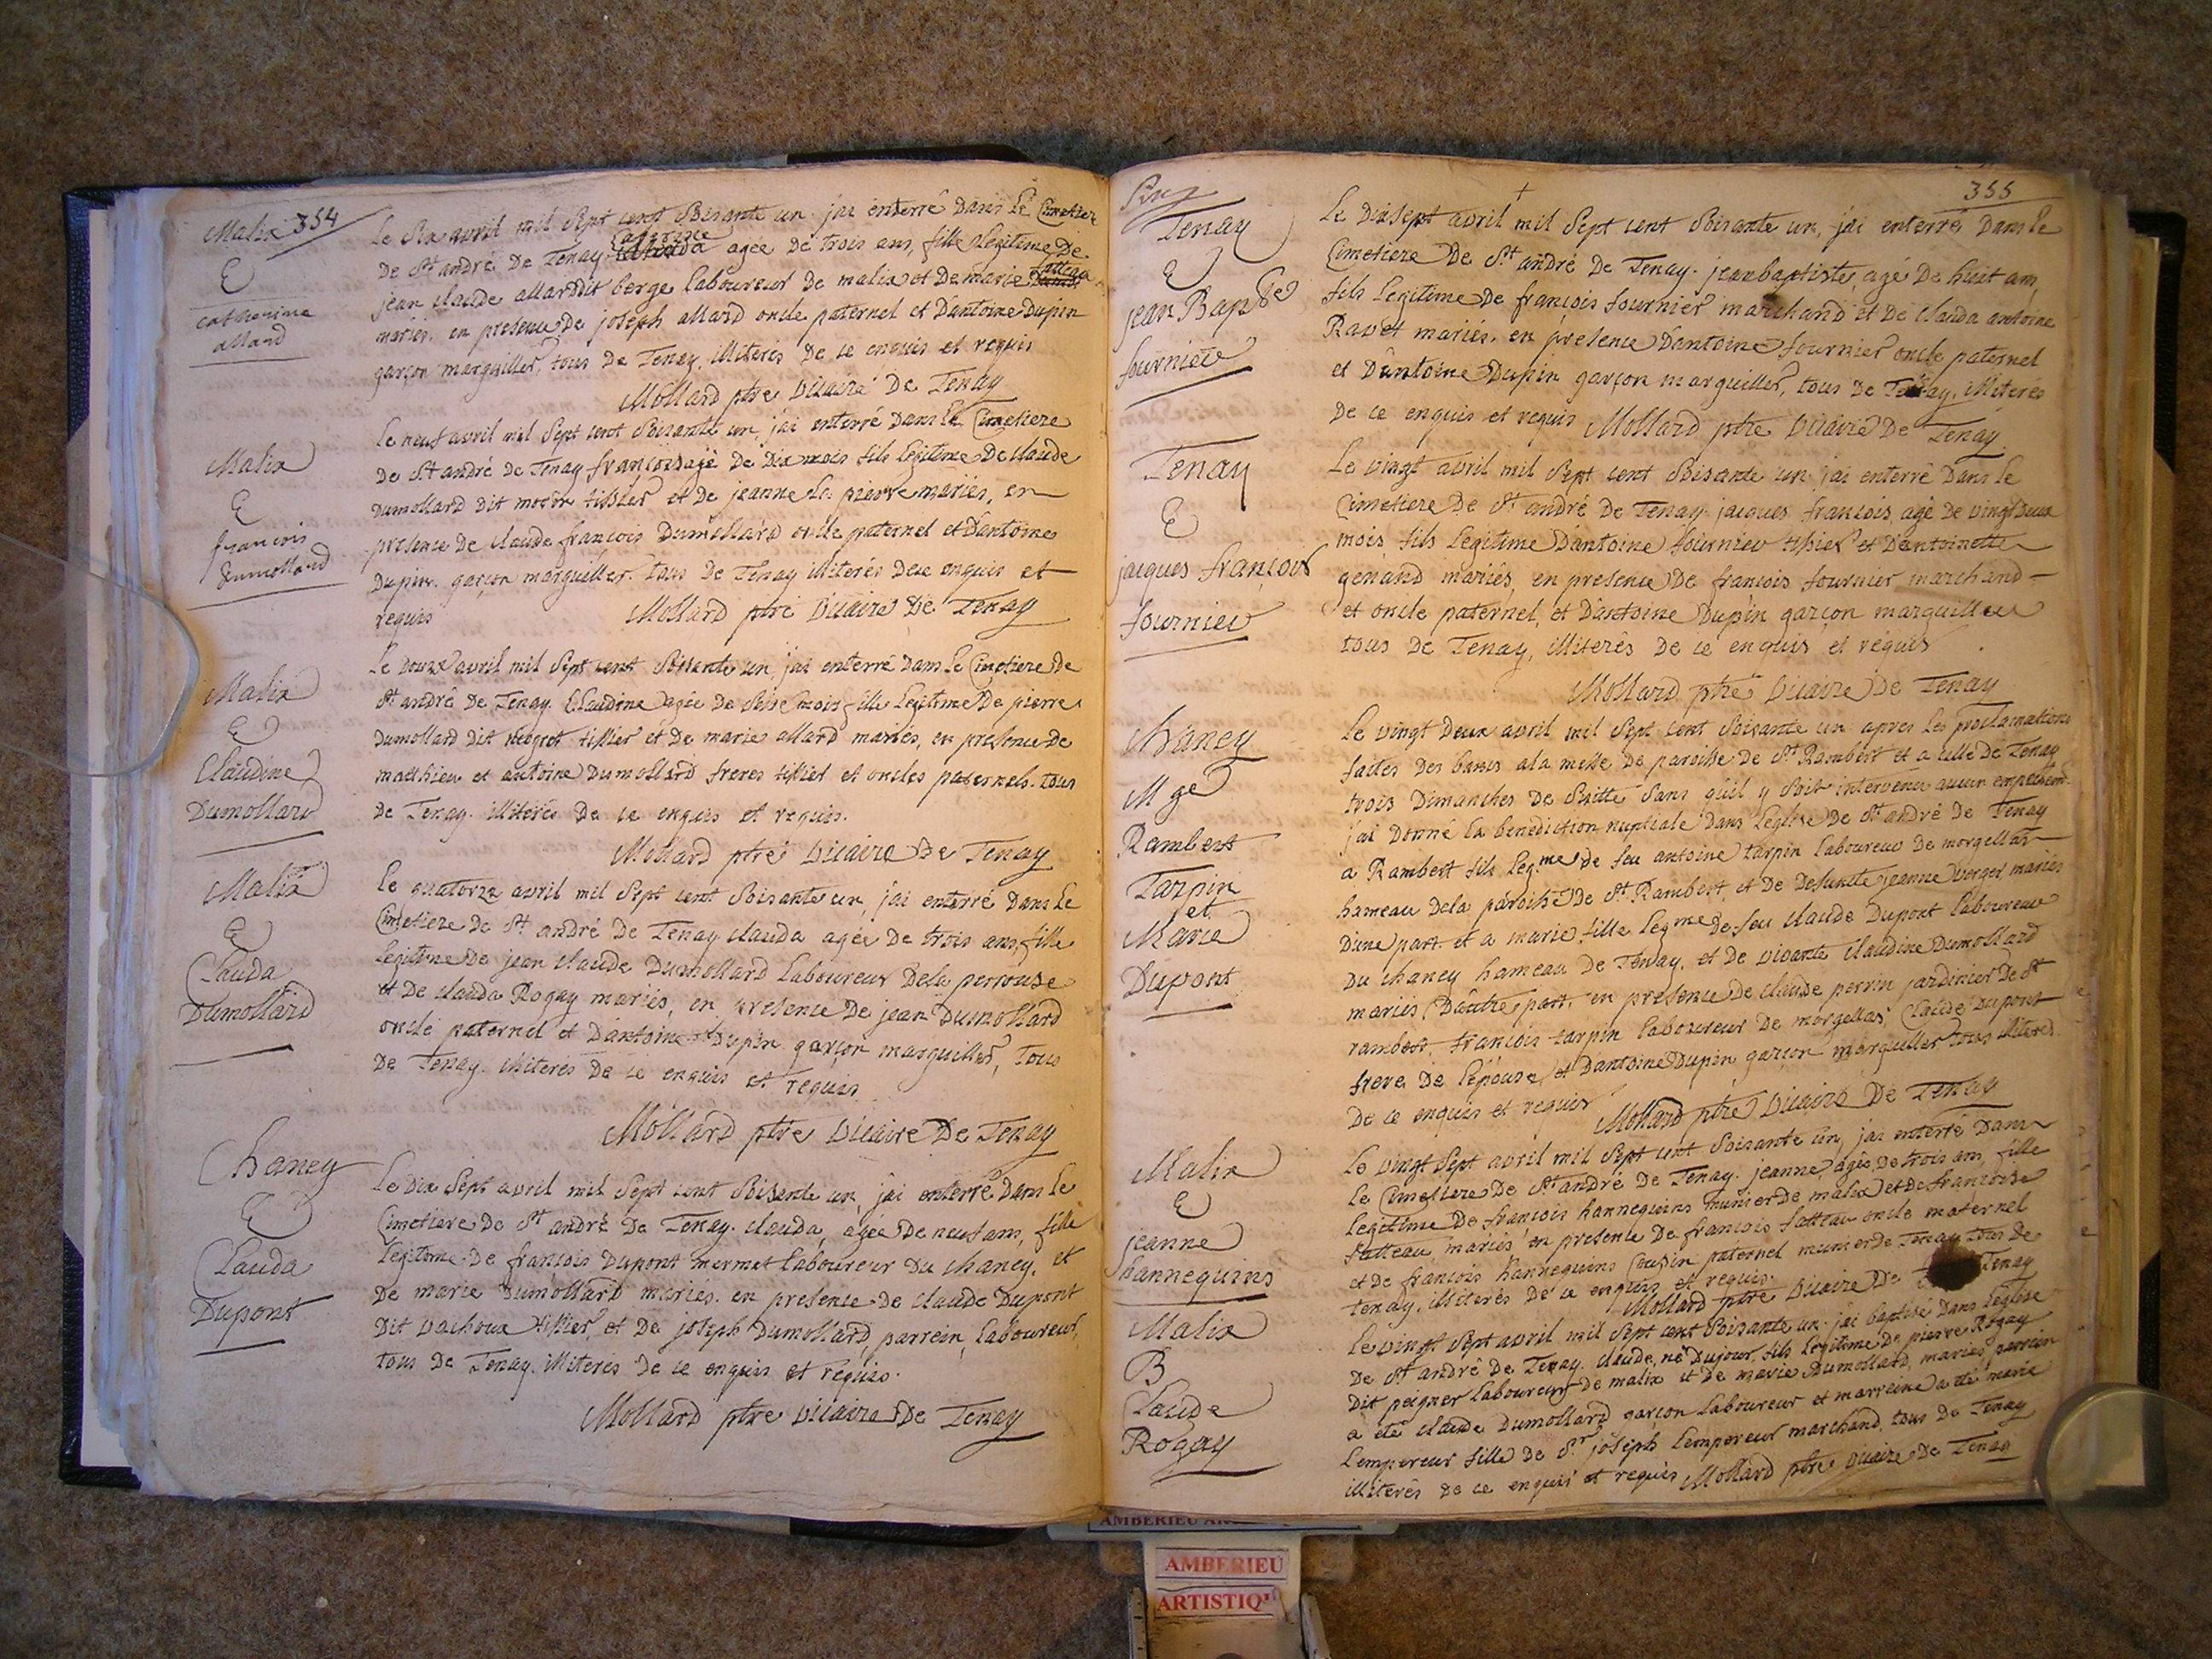 354
Malix
E
catherine
allard
Le six avril mil sept cent soisante un jai enterré dans le Cimetiere
De St andré De Tenay Catherine agée de trois ans, fille Legitime De
jean claude allard dit berge laboureur de malix et De marie fatteau
mariés. en presence de joseph allard oncle paternel et D'antoine Dupin
garçon marguiller, tous de Tenay. illiterés De ce enquis et requis
Mollard ptre Vicaire De Tenay
Malix
E
françois
Dumollard
Le neuf avril mil sept cent soisante un j'ai enterré Dans le Cimetiere
de St andré de Tenay françois agé de Dix mois fils legitime De claude
Dumollard dit tissier et de jeanne La pierre mariés, en
presence de claude françois Dumollard oncle paternel et D'antoine
Dupin garçon marguiller. tous de Tenay illiterés de ce enquis et
requis
Mollard ptre Vicaire De Tenay
Malix
E
Claudine
Dumollard
Le Douze avril mil sept cent soisante un, jai enterré Dans le Cimetiere de
St andré de Tenay Claudine agée de seise mois fille Legitime De pierre
Dumollard dit tissier et de marie allard mariés, en presence de
matthieu et antoine Dumollard freres tissier et oncles paternels. tous
de Tenay. illiterés De ce enquis et requis.
Mollard ptre Vicaire De Tenay
Malix
E
Clauda
Dumollard
Le quatorze avril mil sept cent soisante un, j'ai enterré Dans Le
Cimetiere de St andré De Tenay clauda agée de trois ans, fille
Legitime De jean claude Dumollard Laboureur De la perrouse
et De clauda Rogay mariés, en presence De jean Dumollard
oncle paternel et D'antoine Dupin garçon marguiller, tous
de Tenay. illiterés De ce enquis et requis
Mollard ptre Vicaire De Tenay
Chaney
E
Clauda
Dupont
Le dix sept avril mil sept cent soisante un, j'ai enterré Dans le
Cimetiere de St andré De Tenay. clauda, agée De neuf ans, fille
legitime De françois Dupont mermet laboureur Du chaney, et
De marie Dumollard mariés. en presence de claude Dupont
Dit vachoux tissier, et De joseph Dumollard, parrein, Laboureur,
tous De Tenay. illiterés De ce enquis et requis.
Mollard ptre Vicaire De Tenay
355
Tenay
E
jean Bapte
fournier
Le Dixsept avril mil sept cent soisante un, j'ai enterré Dans le
Cimetiere De St andré De Tenay. jean baptiste, agé De huit ans,
fils legitime De françois fournier marchand et De clauda antoine
Ravet mariés. en presence D'antoine fournier oncle paternel
et D'antoine Dupin garçon marguiller, tous De Tenay. illiterés
de ce enquis et requis
Mollard ptre Vicaire De Tenay
Tenay
E
jacques françois
fournier
Le vingt avril mil sept cent soisante un jai enterré Dans le
Cimetiere De St andré De Tenay. jacques françois agé de vingt deux
mois fils legitime D'antoine fournier tissier et D'antoinette
genand mariés, en presence De françois fournier marchand
et oncle paternel, et D'antoine Dupin garçon marguiller
tous De Tenay, illiterés de ce enquis et requis
Mollard ptre Vicaire De Tenay
Chaney
Mge
Rambert
Tarpin
et
Marie
Dupont
Le vingt Deux avril mil sept cent soisante un apres les proclamations
faites des bancs a la messe de paroisse de St Rambert et a celle De Tenay
trois Dimanches de suitte sans qu'il y soit intervenu aucun empechem
j'ai Donné la benediction nuptiale dans l'eglise De St andré de Tenay
a Rambert fils legme de feu antoine tarpin laboureur de morgellas
hameau De la paroisse De St Rambert, et de Defuncte jeanne verger mariés
D'une part et a marie fille legme De feu claude Dupont laboureur
Du chaney hameau de Tenay. et de vivante claudine Dumollard
mariés D'autre part. en presence De claude perrin jardinier De St
rambert, françois tarpin laboureur De morgellas, claude Dupont
frere De l'epouse, et D'antoine Dupin garçon marguiller tous illiterés
De ce enquis et requis
Mollard ptre Vicaire De Tenay
Malix
E
jeanne
hannequins
Le vingt sept avril mil sept cent soisante un, jai enterré Dans
Le Cimetiere De St andré De Tenay. jeanne, agée, de trois ans, fille
Legitime De françois hannequins munier de malix et de françoise
fatteau mariés en presence De françois fatteau oncle maternel
et de françois hannequins Cousin paternel munier de Tenay tous De
Tenay. illiterés de ce enquis et requis.
Mollard ptre Vicaire De Tenay
Malix
B
Claude
Rogay
Le vingt sept avril mil sept cent soisante un. j'ai baptisé Dans l'eglise
De St andré de Tenay. claude, né Du jour, fils legitime De pierre Rogay
Dit peigner laboureur de malix et De marie Dumollard, mariés parrein
a été claude Dumollard garçon laboureur et marreine a été marie
L'empereur fille de Sr joseph L'empereur marchand, tous De Tenay
illiterés de ce enquis et requis Mollard ptre Vicaire De Tenay
AMBERIEU
ARTISTIQU